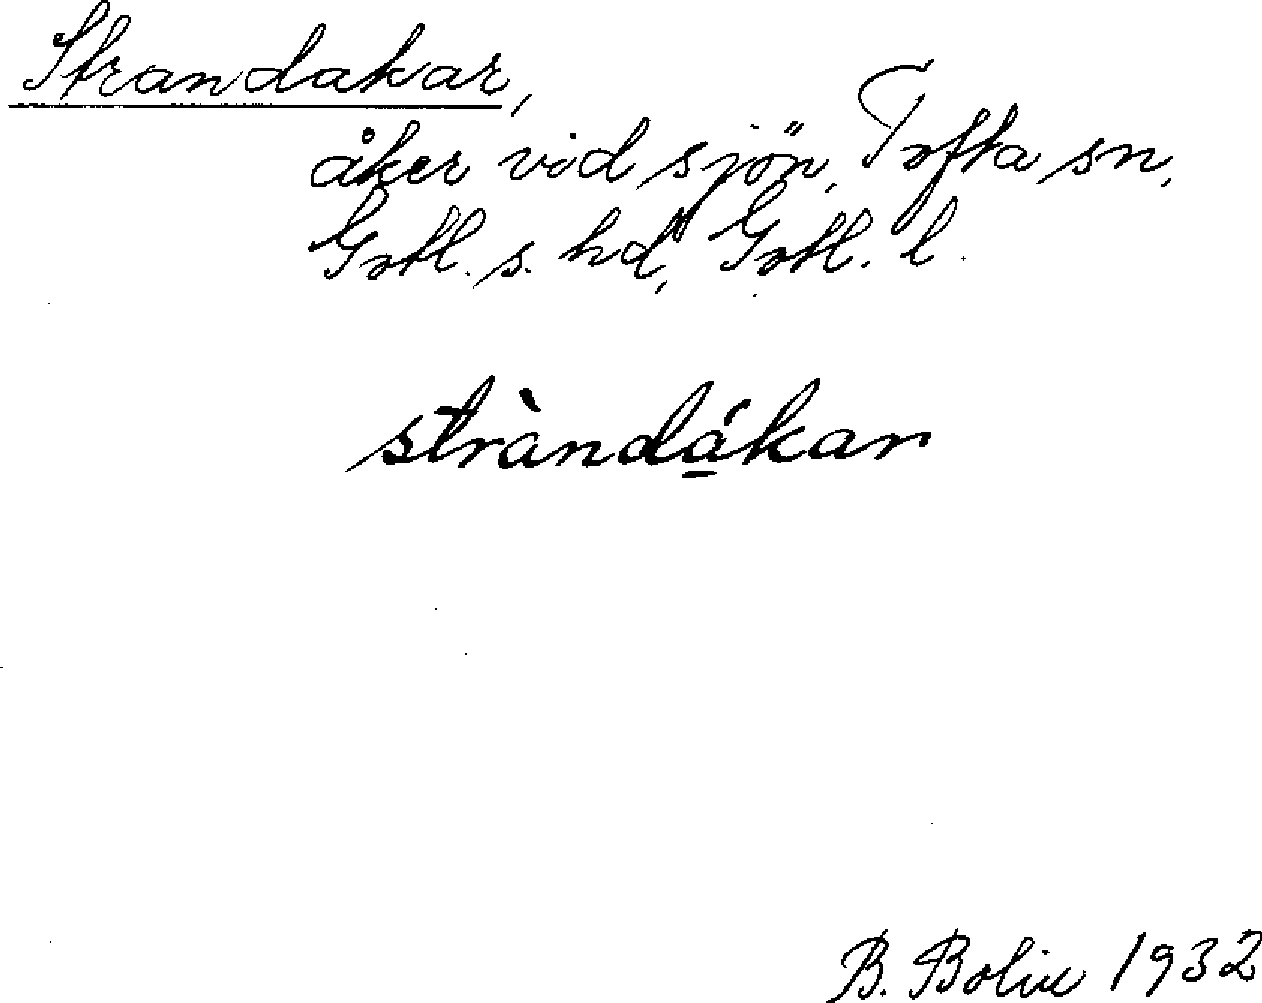 Strandakar,
åker vid sjön, Tofta sn,
Gotl. s. hd, Gotl. l.
stràndá̱kar
B. Bolin 1932